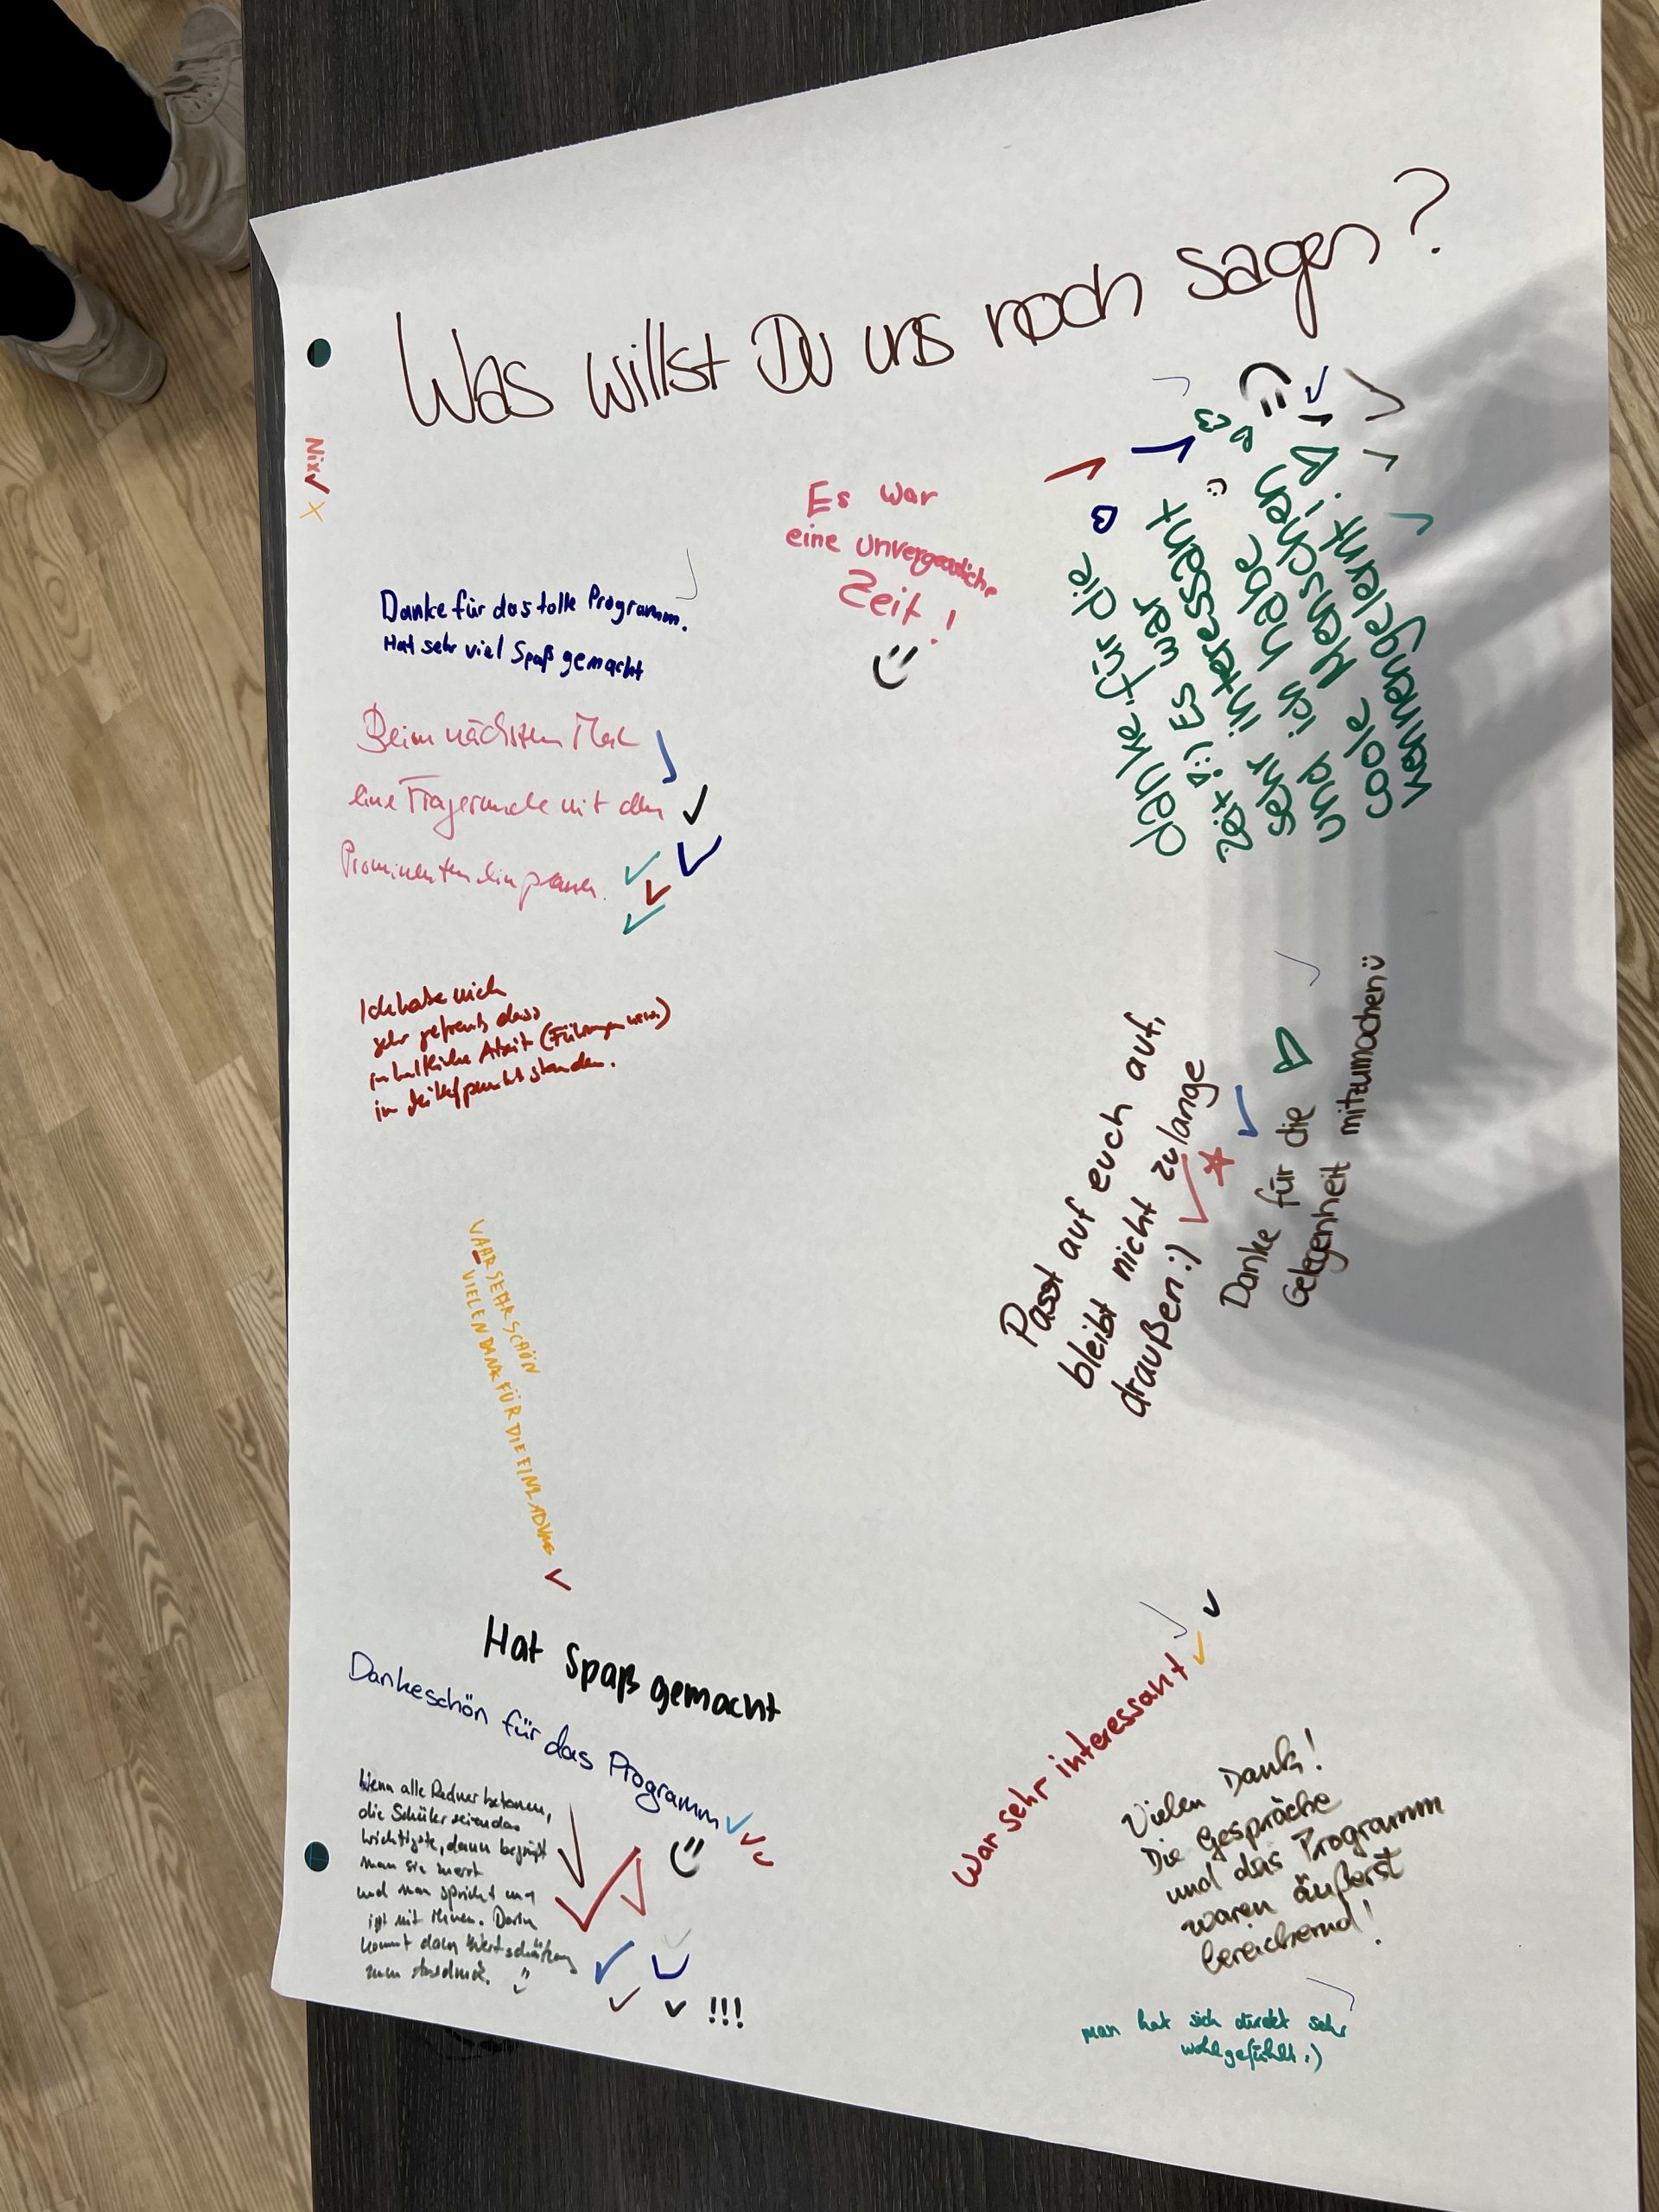 Was willst Du uns noch sagen?
Nix
Es war
eine unvergessliche
Zeit!
danke für die
Zeit :) Es war
sehr interessant
und ich habe
coole Menschen
kennengelernt!
:)
Danke für das tolle Programm.
Hat sehr viel Spaß gemacht
Beim nächsten Mal
eine Fragerunde mit den
Prominenten einplanen.
Ich habe mich
sehr gefreut, dass
inhaltliche Arbeit (Führungen usw.)
im Mittelpunkt standen.
Passt auf euch auf,
bleibt nicht zu lange
draußen :)
Danke für die
Gelegenheit mitzumachen ü
WAR SEHR SCHÖN
VIELEN DANK FÜR DIE EINLADUNG
Hat Spaß gemacht
Dankeschön für das Programm
Wenn alle Redner betonen,
die Schüler seien das
Wichtigste, dann begrüßt
man sie zuerst
und man spricht und
isst mit ihnen. Darin
kommt dann Wertschätzung
zum Ausdruck.
!!!
War sehr interessant
Vielen Dank!
Die Gespräche
und das Programm
waren äußerst
bereichernd!
man hat sich direkt sehr
wohlgefühlt :)